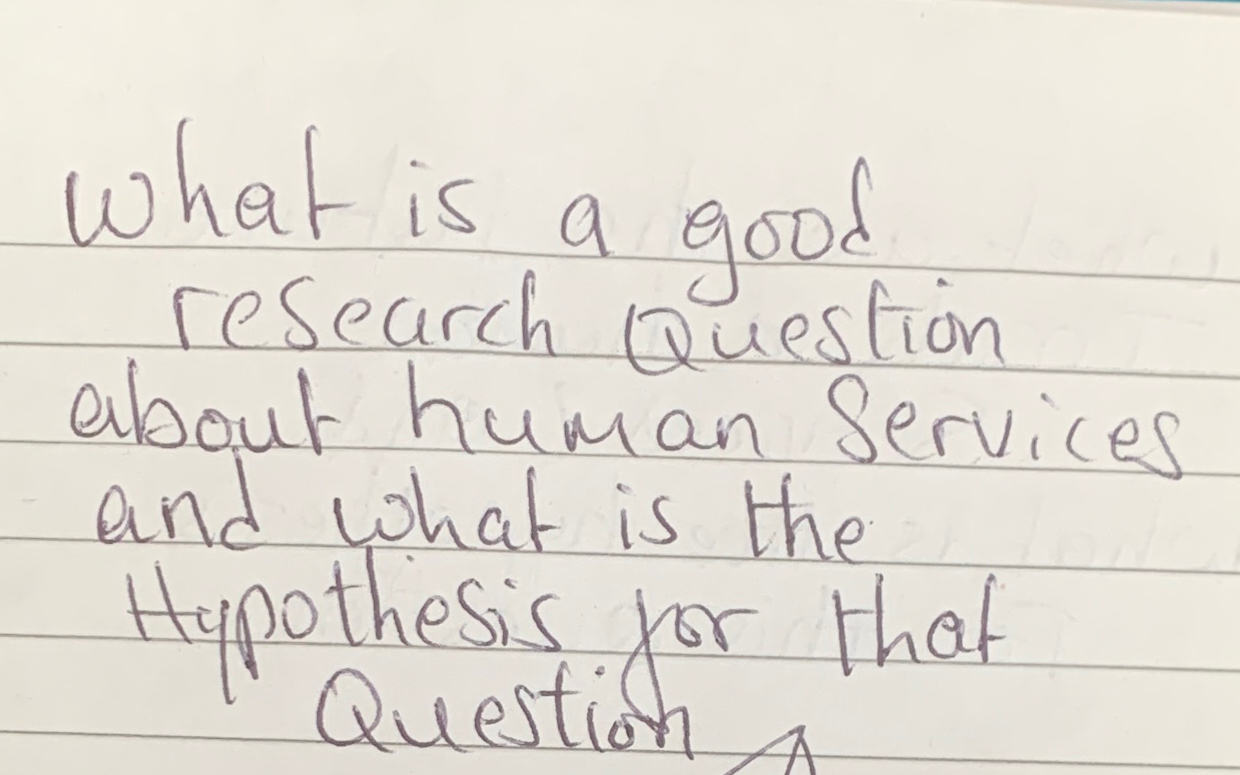 What is a good
research Question
about human Services
and what is the
Hypothesis for that
Question